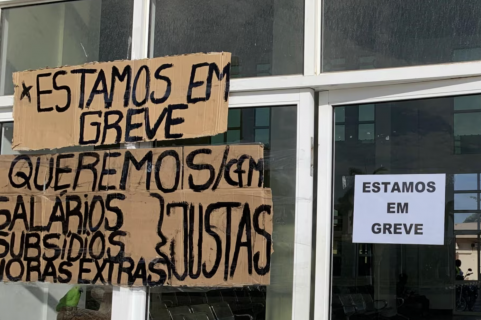 *ESTAMOS EM
GREVE
QUEREMOS/CEM
SALÁRIOS
SUBSÍDIOS
HORAS EXTRAS
} JUSTAS
ESTAMOS
EM
GREVE